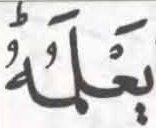 يَعْلَمُهٗؕ